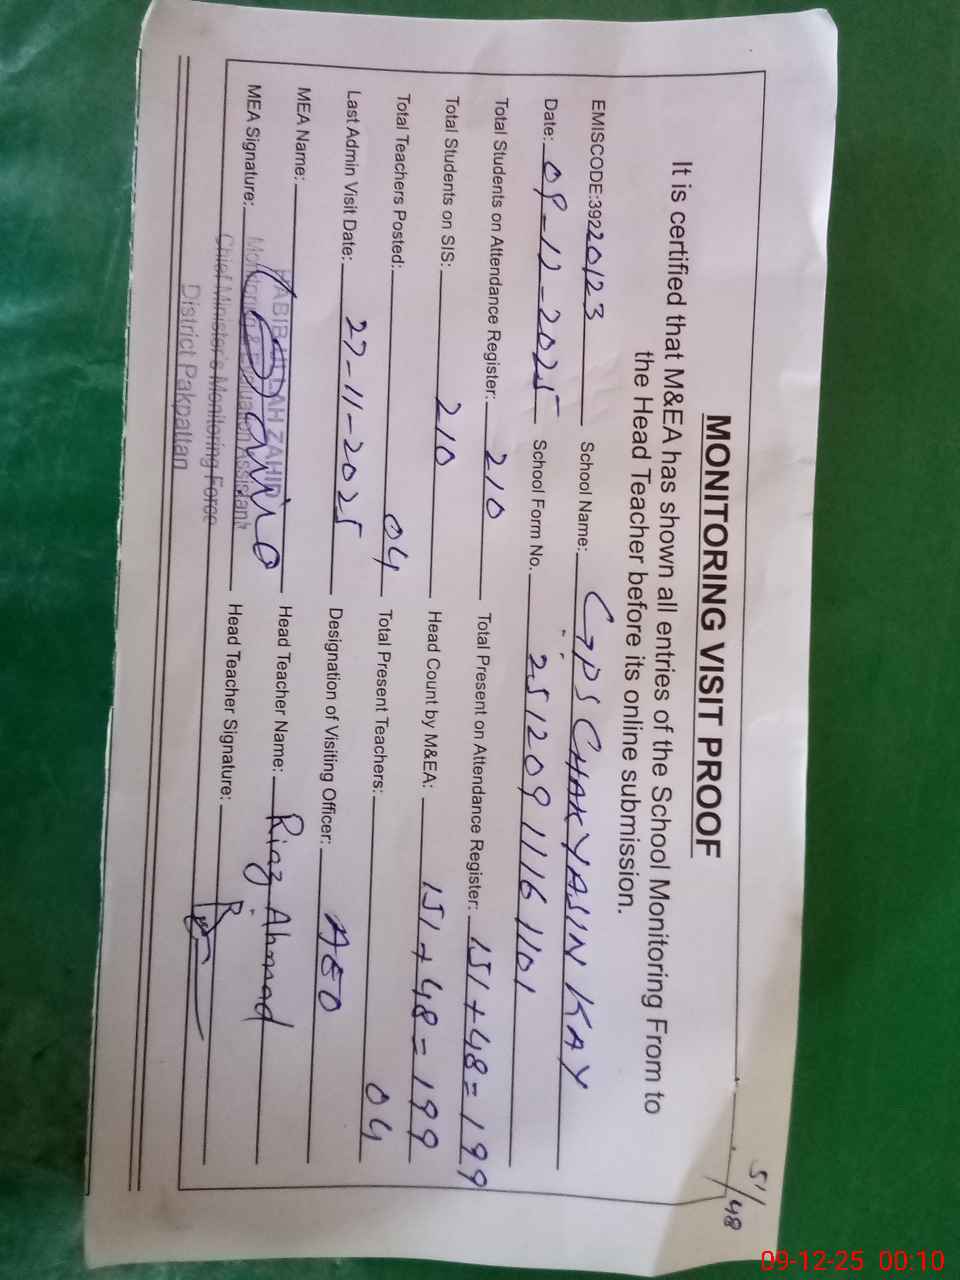 51/48
MONITORING VISIT PROOF
It is certified that M&EA has shown all entries of the School Monitoring From to
the Head Teacher before its online submission.
EMISCODE:39220123 School Name: GPS CHAK YASIN KAY
Date: 09-12-2025 School Form No. 25120911161101
Total Students on Attendance Register: 210 Total Present on Attendance Register: 151+48=199
Total Students on SIS: 210 Head Count by M&EA: 151+48=199
Total Teachers Posted: 04 Total Present Teachers: 04
Last Admin Visit Date: 27-11-2025 Designation of Visiting Officer: AEO
MEA Name: HABIB ULLAH ZAHID Head Teacher Name: Riaz Ahmad
MEA Signature: Head Teacher Signature:
Monitoring & Evaluation Assistant
Chief Minister's Monitoring Force
District Pakpattan
09-12-25 00:10